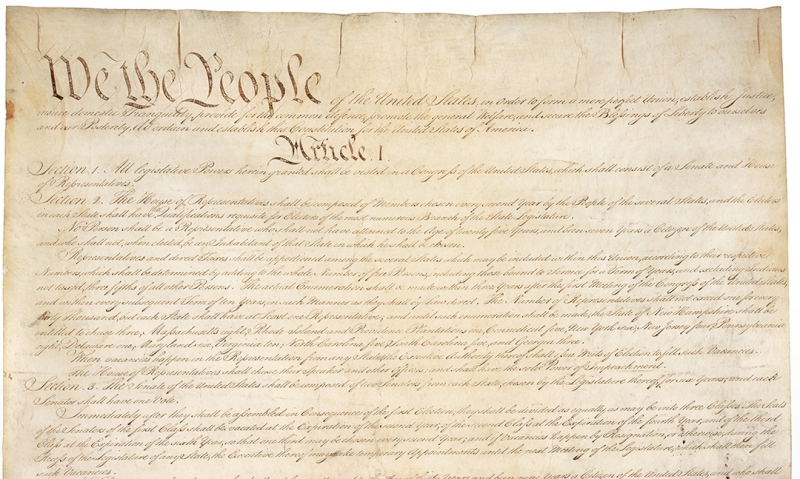 We the People of the United States, in Order to form a more perfect Union, establish Justice,
insure domestic Tranquility, provide for the common defence, promote the general Welfare, and secure the Blessings of Liberty to ourselves
and our Posterity, do ordain and establish this Constitution for the United States of America.
Article. I.
Section. 1. All legislative Powers herein granted shall be vested in a Congress of the United States, which shall consist of a Senate and House
of Representatives.
Section. 2. The House of Representatives shall be composed of Members chosen every second Year by the People of the several States, and the Electors
in each State shall have Qualifications requisite for Electors of the most numerous Branch of the State Legislature.
No Person shall be a Representative who shall not have attained to the Age of twenty five Years, and been seven Years a Citizen of the United States,
and who shall not, when elected, be an Inhabitant of that State in which he shall be chosen.
Representatives and direct Taxes shall be apportioned among the several States which may be included within this Union, according to their respective
Numbers, which shall be determined by adding to the whole Number of free Persons, including those bound to Service for a Term of Years, and excluding Indians
not taxed, three fifths of all other Persons. The actual Enumeration shall be made within three Years after the first Meeting of the Congress of the United States,
and within every subsequent Term of ten Years, in such Manner as they shall by Law direct. The Number of Representatives shall not exceed one for every
thirty Thousand, but each State shall have at Least one Representative; and until such enumeration shall be made, the State of New Hampshire shall be
entitled to chuse three, Massachusetts eight, Rhode Island and Providence Plantations one, Connecticut five, New York six, New Jersey four, Pennsylvania
eight, Delaware one, Maryland six, Virginia ten, North Carolina five, South Carolina five, and Georgia three.
When vacancies happen in the Representation from any State, the Executive Authority thereof shall issue Writs of Election to fill such Vacancies.
The House of Representatives shall chuse their Speaker and other Officers; and shall have the sole Power of Impeachment.
Section. 3. The Senate of the United States shall be composed of two Senators from each State, chosen by the Legislature thereof, for six Years; and each
Senator shall have one Vote.
Immediately after they shall be assembled in Consequence of the first Election, they shall be divided as equally as may be into three Classes. The Seats
of the Senators of the first Class shall be vacated at the Expiration of the second Year, of the second Class at the Expiration of the fourth Year, and of the third
Class at the Expiration of the sixth Year, so that one third may be chosen every second Year; and if Vacancies happen by Resignation, or otherwise, during the
Recess of the Legislature of any State, the Executive thereof may make temporary Appointments until the next Meeting of the Legislature, which shall then fill
such Vacancies.
Years, and been nine Years a Citizen of the United States, and who shall